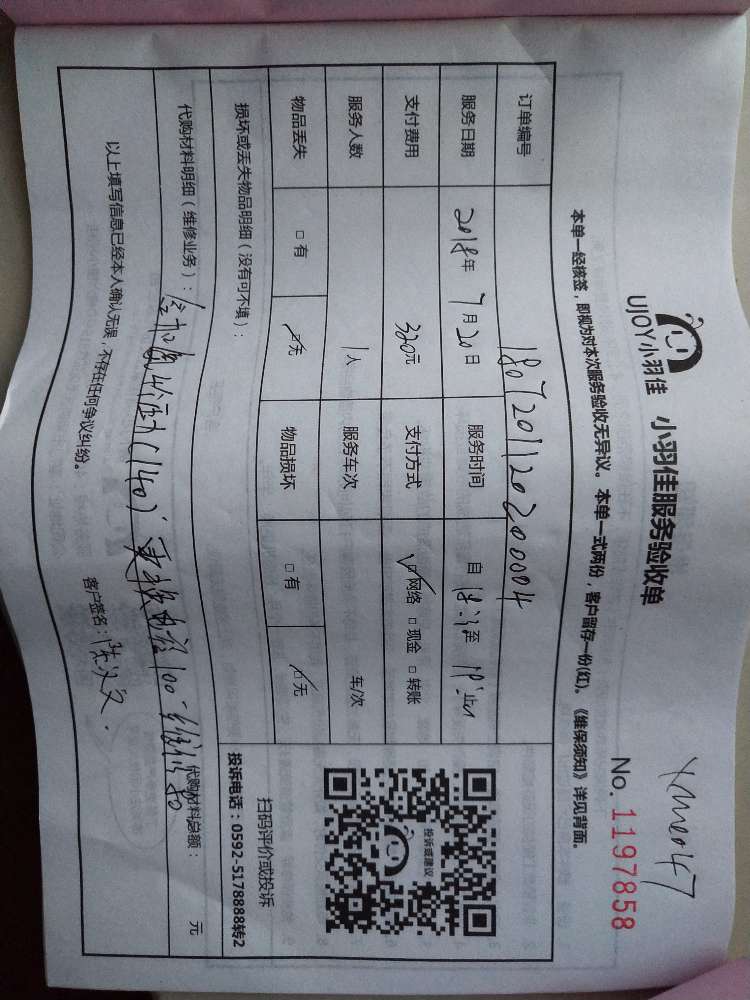 xme047
UJOY小羽佳 小羽佳服务验收单
No. 1197858
本单一经核签，即视为对本次服务验收无异议。本单一式两份，客户留存一份(红)。《维保须知》详见背面。
订单编号 180720112020000004
服务日期 2018年 7月20日 服务时间 自 至 止
支付费用 320元 支付方式 ☑网络 □现金 □转账
服务人数 1人 服务车次 车/次
物品丢失 □有 ☑无 物品损坏 □有 ☑无
投诉或建议
扫码评价或投诉
投诉电话：0592-5178888转2
损坏或丢失物品明细（没有可不填）：
代购材料明细（维修业务）： 加氟 (140) 更换 100 80
代购材料总额： 元
以上填写信息已经本人确认无误，不存在任何争议纠纷。
客户签名：